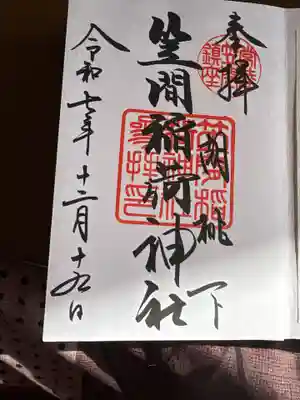 奉拝
胡桃下
笠間稲荷神社
令和七年十二月十九日